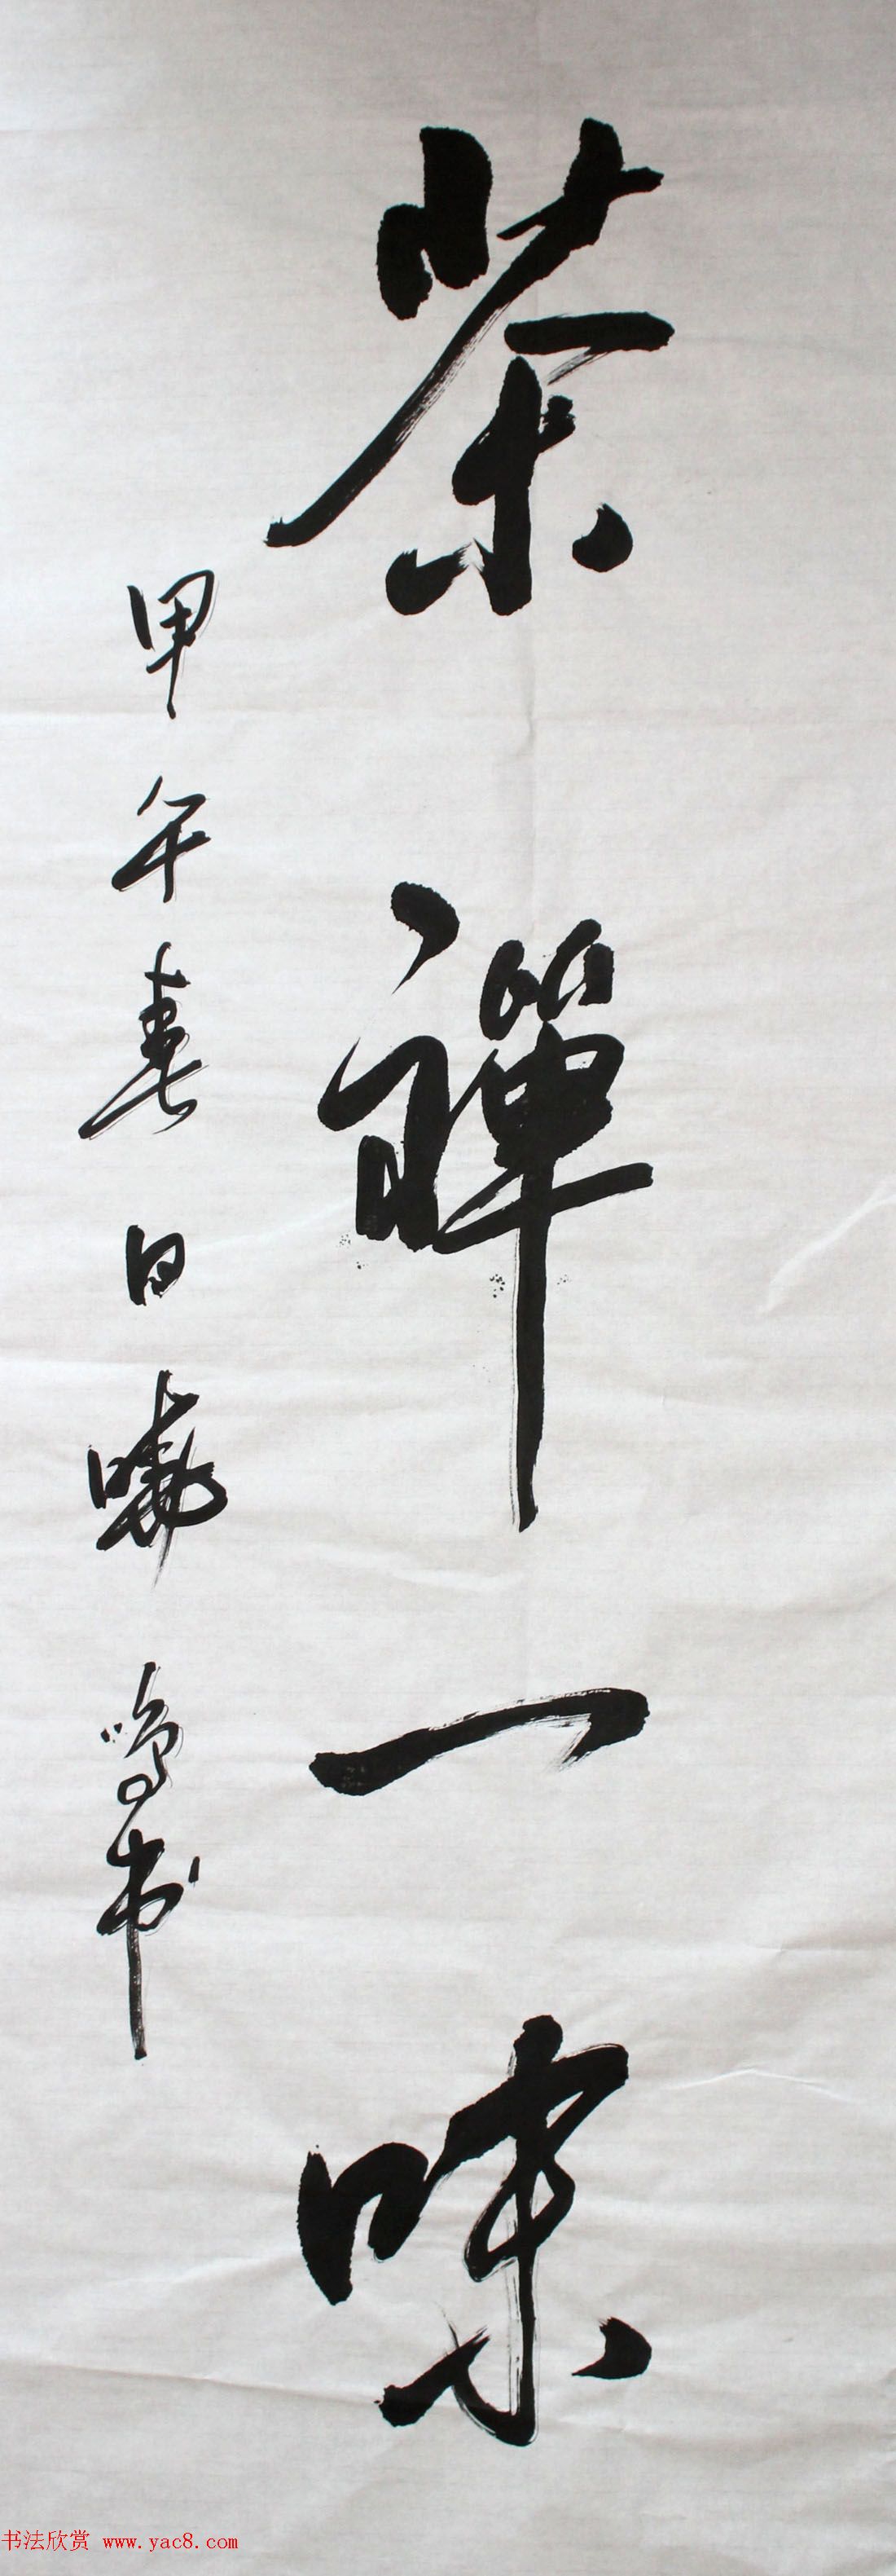 茶禅一味
甲午春日晓鸣书
书法欣赏 www.yac8.com